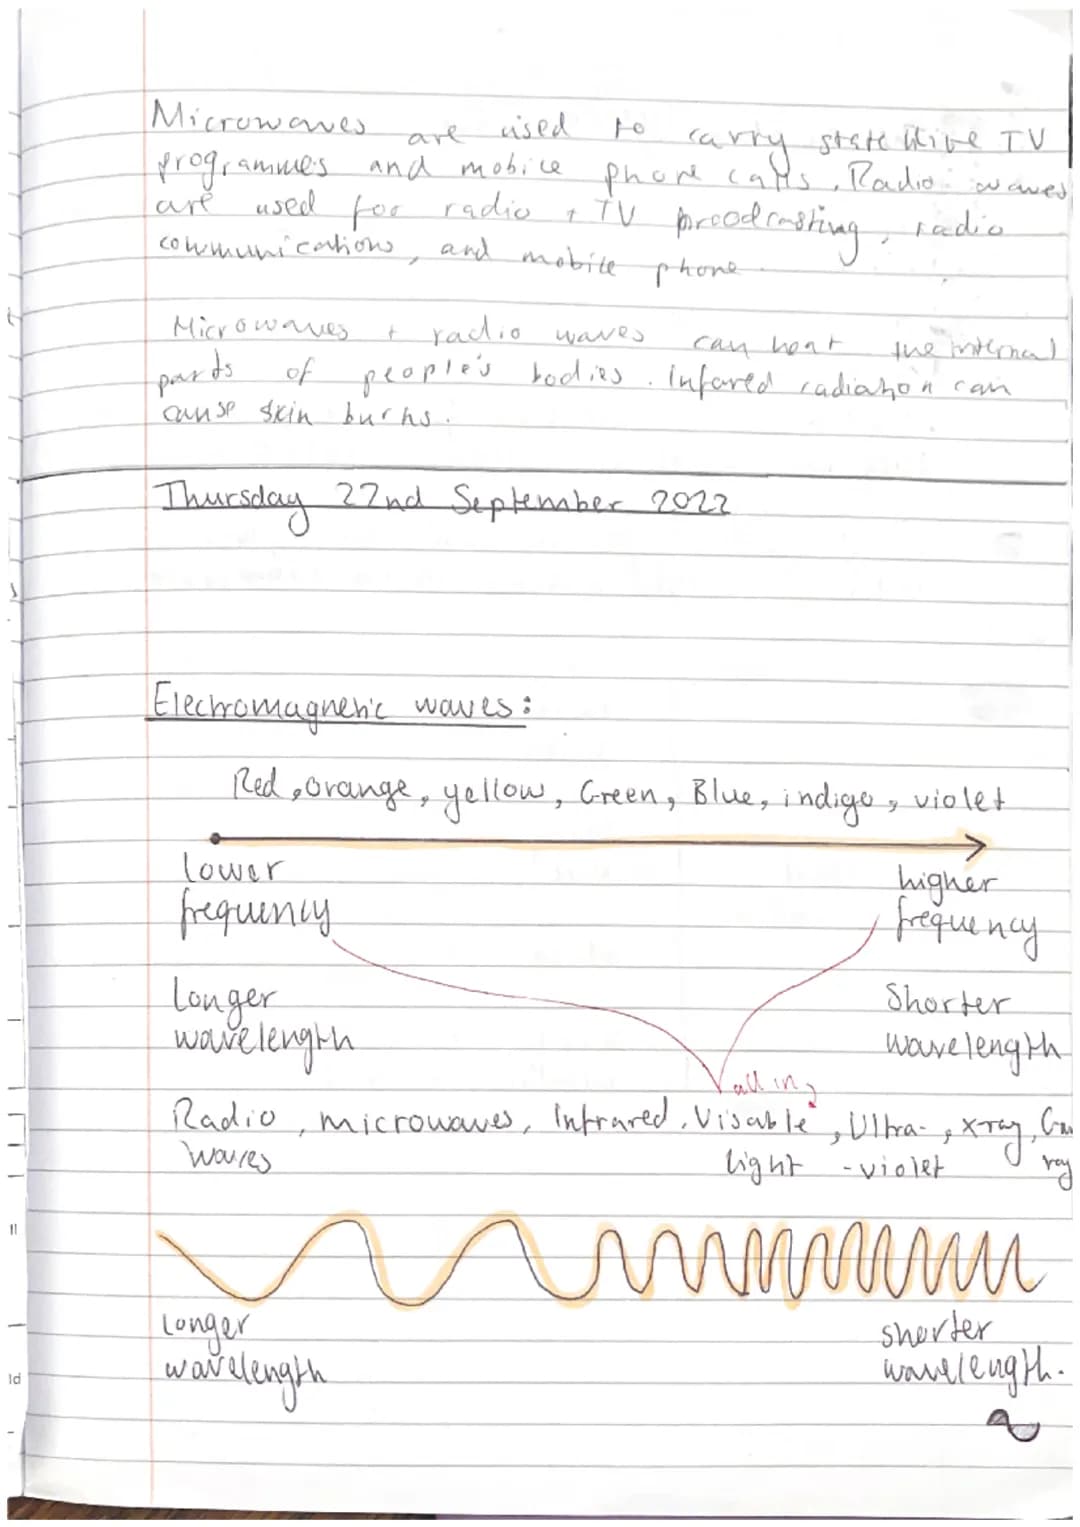 Microwaves are used to carry statellive TV
programmes and mobile phone calls. Radio waves
are used for radio + TV broadcasting, radio
communications, and mobile phone
Microwaves + radio waves can heat the internal
parts of people's bodies. Infared radiation can
cause skin burns.
Thursday 22nd September 2022
Electromagnetic waves:
Red, orange, yellow, Green, Blue, indigo, violet
lower higher
frequency frequency
Longer Shorter
wavelength wavelength
all in
Radio, microwaves, Infrared, Visable, Ultra-, x-ray,
waves light -violet ray
Longer shorter
wavelength wavelength.